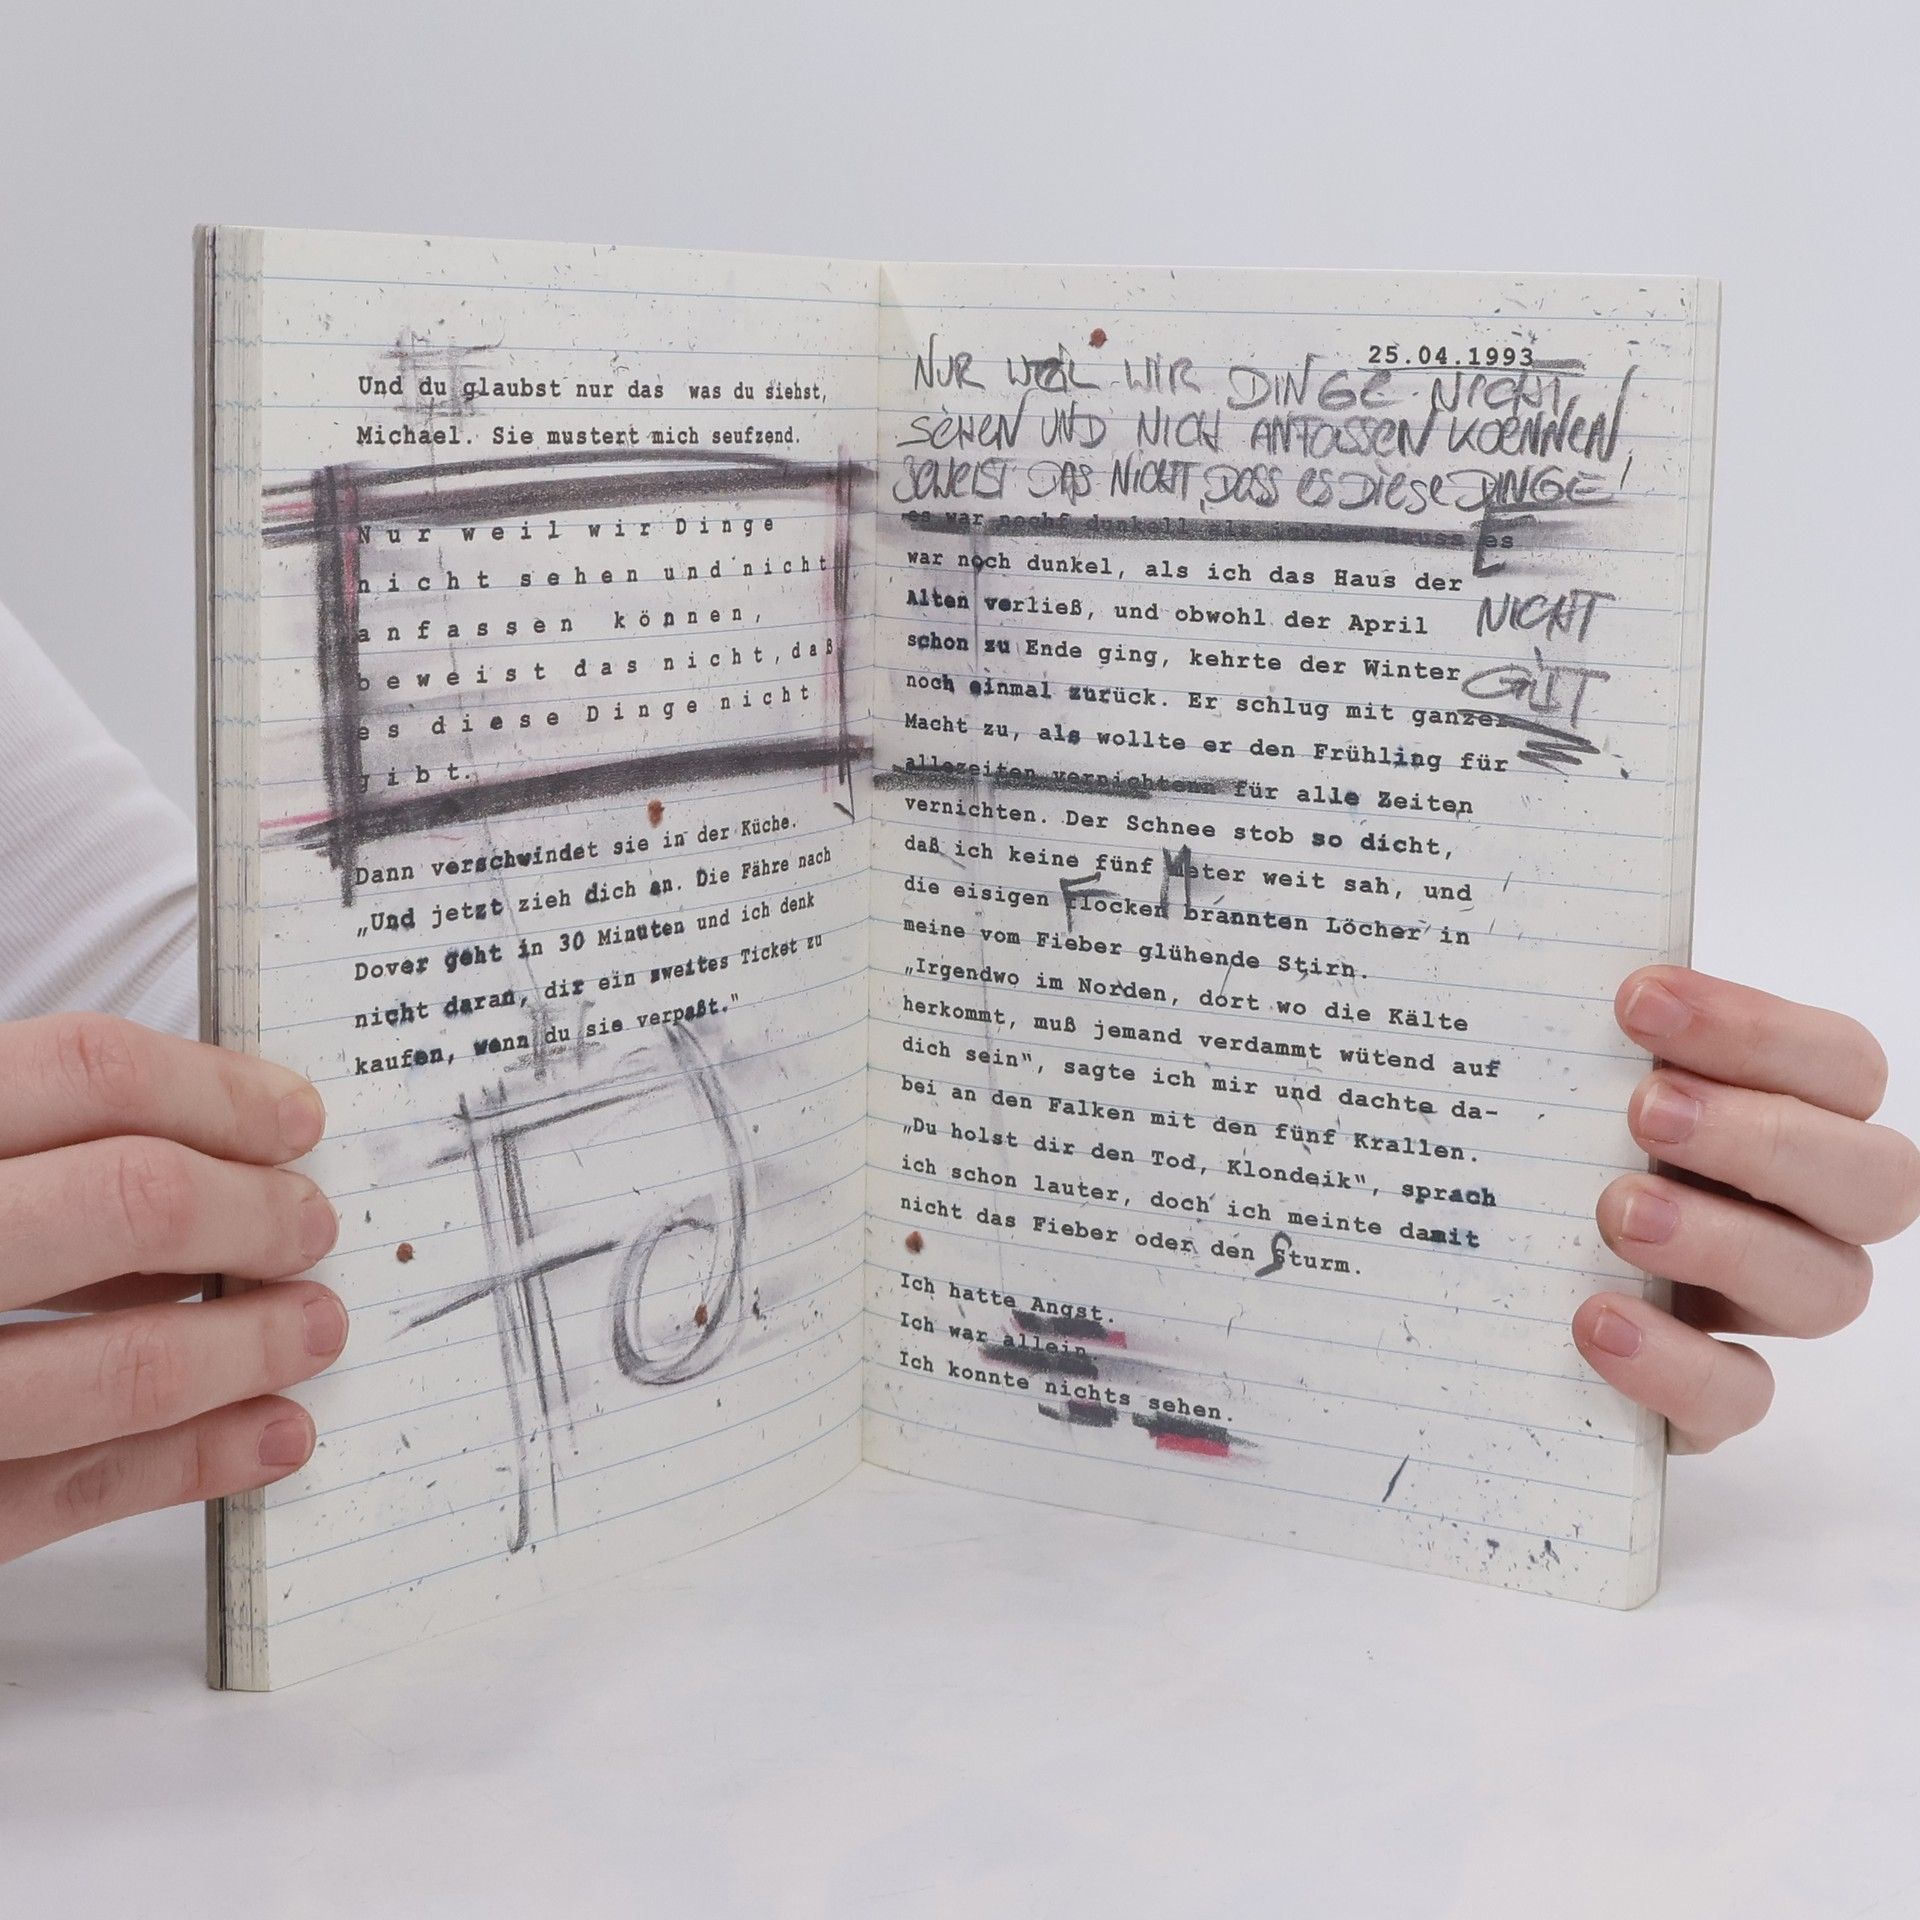 Und du glaubst nur das was du siehst,
Michael. Sie mustert mich seufzend.
Nur weil wir Dinge
nicht sehen und nicht
anfassen können,
beweist das nicht, daß
es diese Dinge nicht
gibt.
Dann verschwindet sie in der Küche.
„Und jetzt zieh dich an. Die Fähre nach
Dover geht in 30 Minuten und ich denk
nicht daran, dir ein zweites Ticket zu
kaufen, wenn du sie verpaßt."
25.04.1993
NUR WEIL WIR DINGE NICHT
SEHEN UND NICH ANFASSEN KOENNEN
BEWEIST DAS NICHT, DASS ES DIESE DINGE!
NICHT
GIBT
es war nochf dunkell als ichdas Hauss es
war noch dunkel, als ich das Haus der
Alten verließ, und obwohl der April
schon zu Ende ging, kehrte der Winter
noch einmal zurück. Er schlug mit ganzer
Macht zu, als wollte er den Frühling für
allezeiten vernichtenn für alle Zeiten
vernichten. Der Schnee stob so dicht,
daß ich keine fünf Meter weit sah, und
die eisigen Flocken brannten Löcher in
meine vom Fieber glühende Stirn.
„Irgendwo im Norden, dort wo die Kälte
herkommt, muß jemand verdammt wütend auf
dich sein", sagte ich mir und dachte da-
bei an den Falken mit den fünf Krallen.
„Du holst dir den Tod, Klondeik", sprach
ich schon lauter, doch ich meinte damit
nicht das Fieber oder den Sturm.
Ich hatte Angst.
Ich war allein.
Ich konnte nichts sehen.